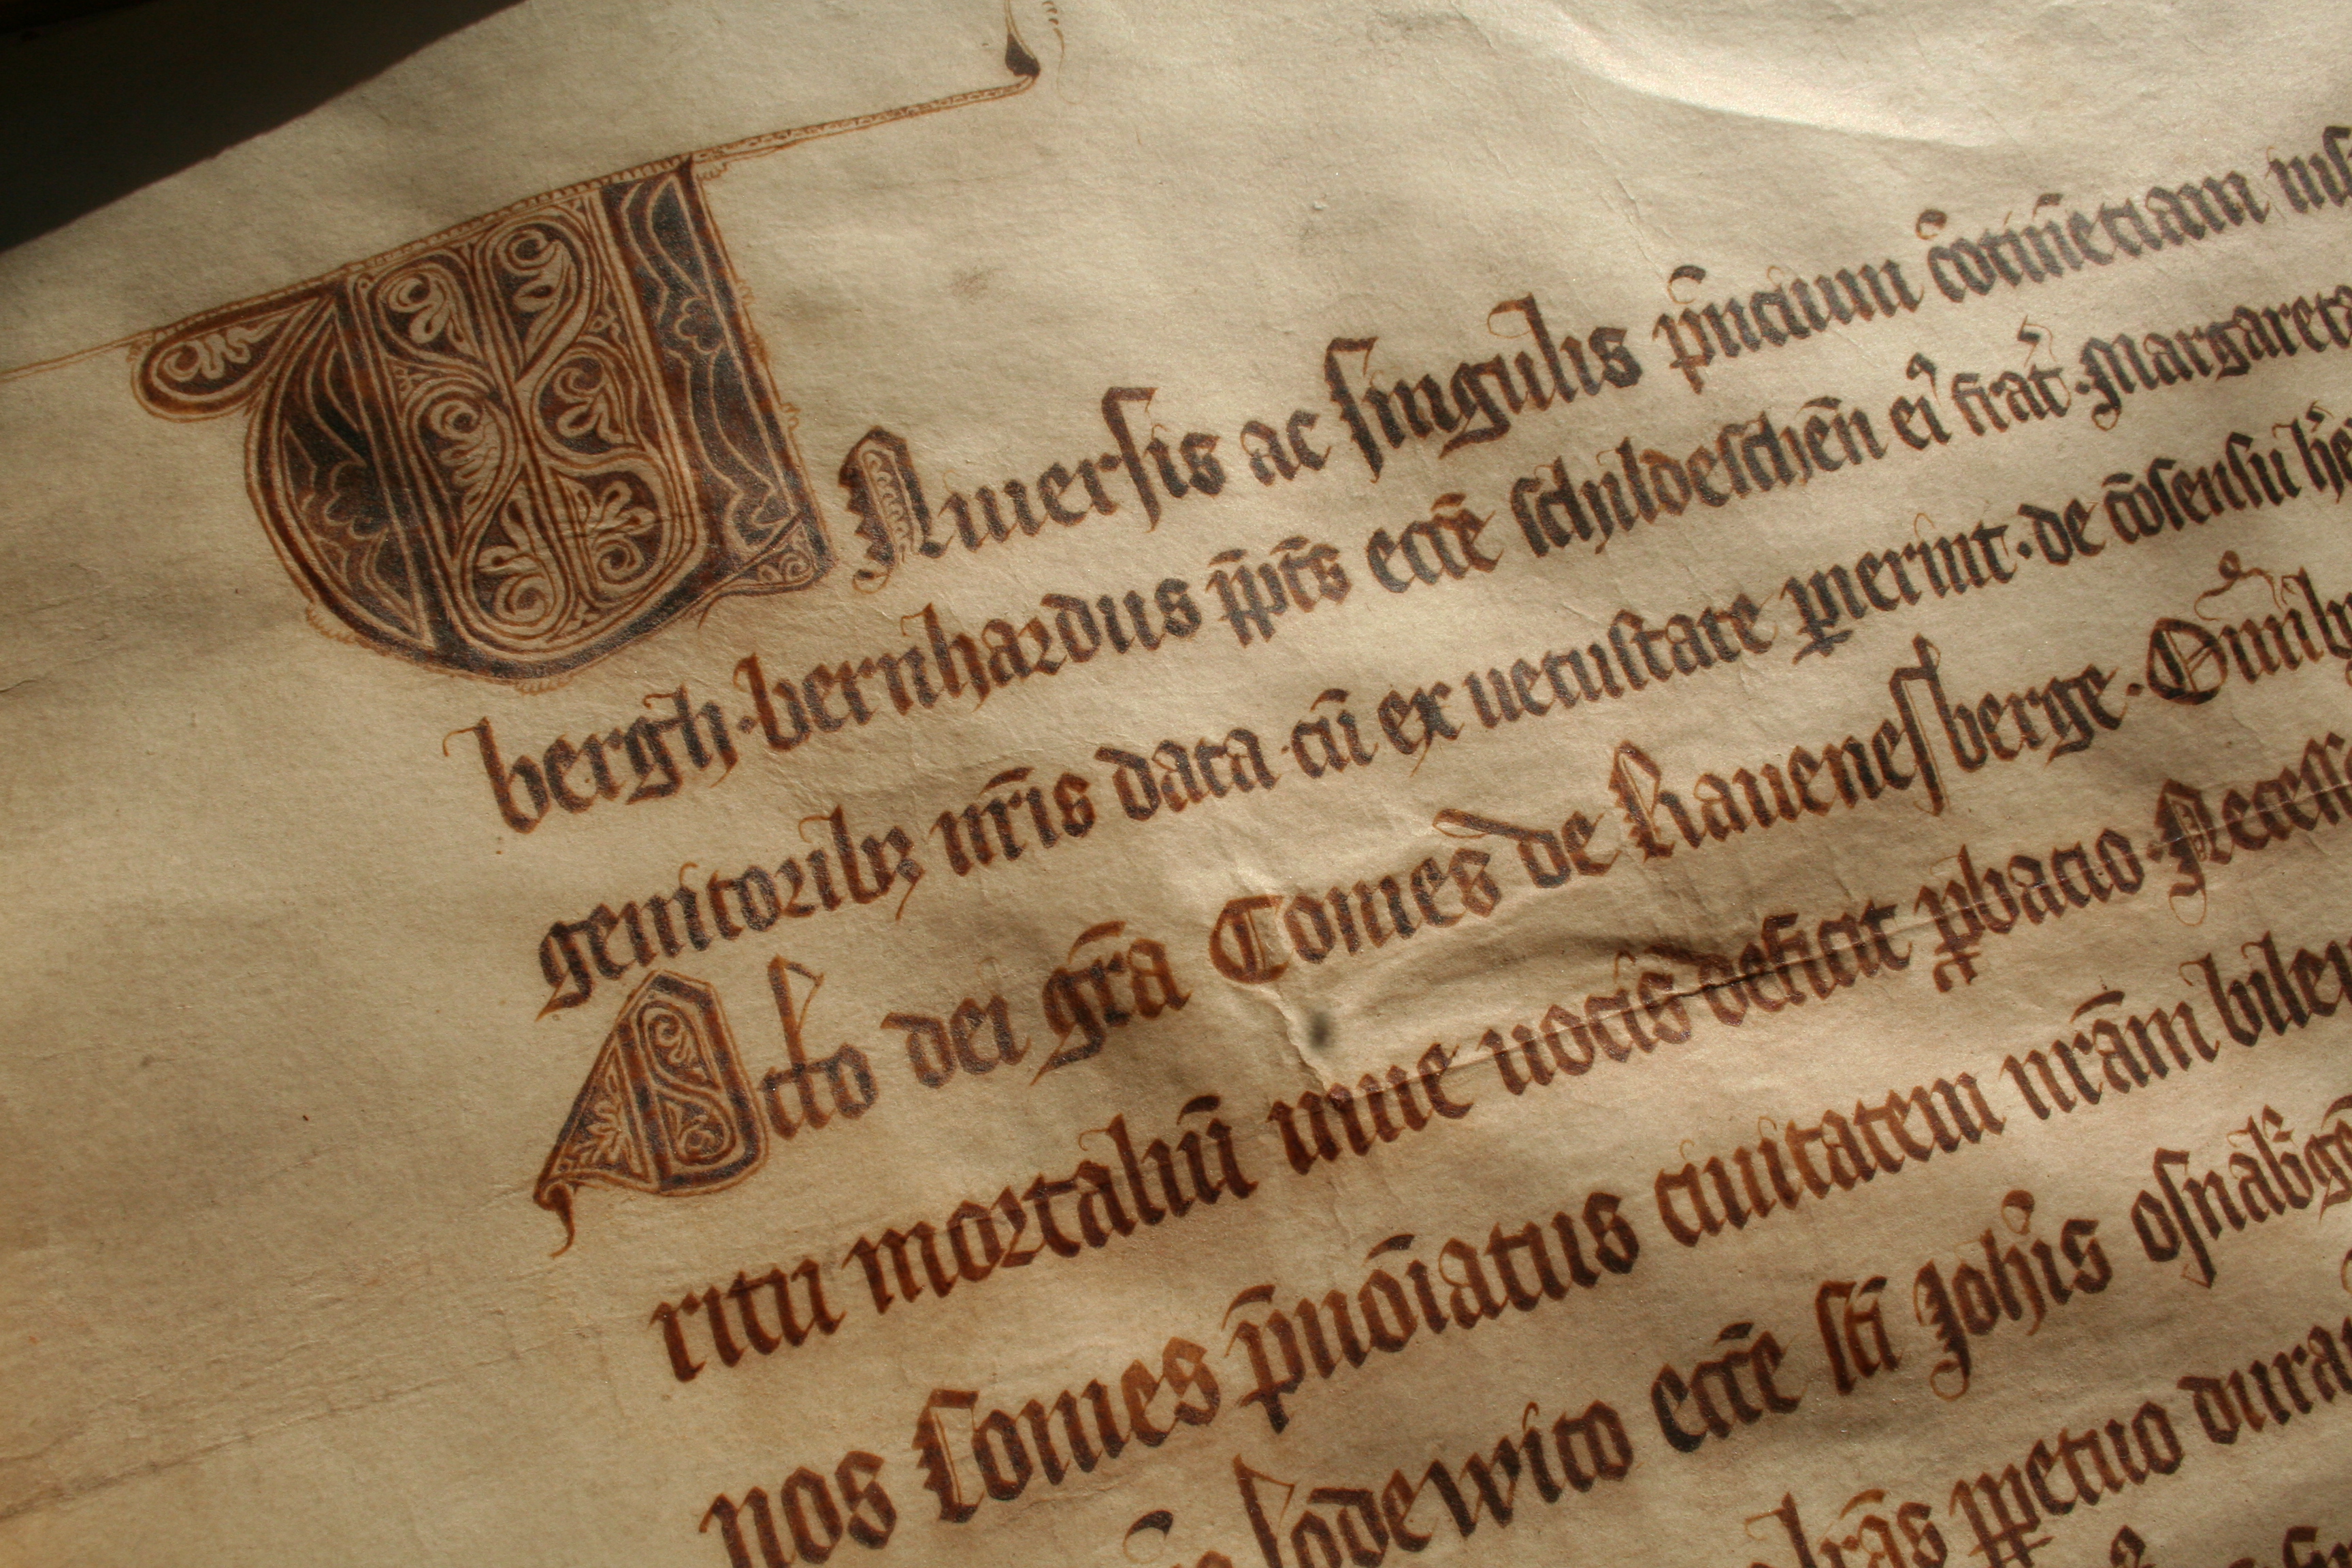 UNiuersis ac singulis p̄ncium
bergh · bernhardus p̄p̄t̄s ecc̄e schildesch̄en ei᷒ frat̄ · Margareta
genitoribꝫ nr̄is data · cū ex uetustate ꝑierint · de c̄osensu
Otto dei gr̄a Comes de Rauenesberge · Om̄ib
ritu mortaliū uiue uocis deficit ꝓbacio · Necess
nos Comes p̄nōiatus ciuitatem nr̄am bile
lodewico ecc̄e sc̄i Joh̄is osnab̄g
ꝑpetuo dura